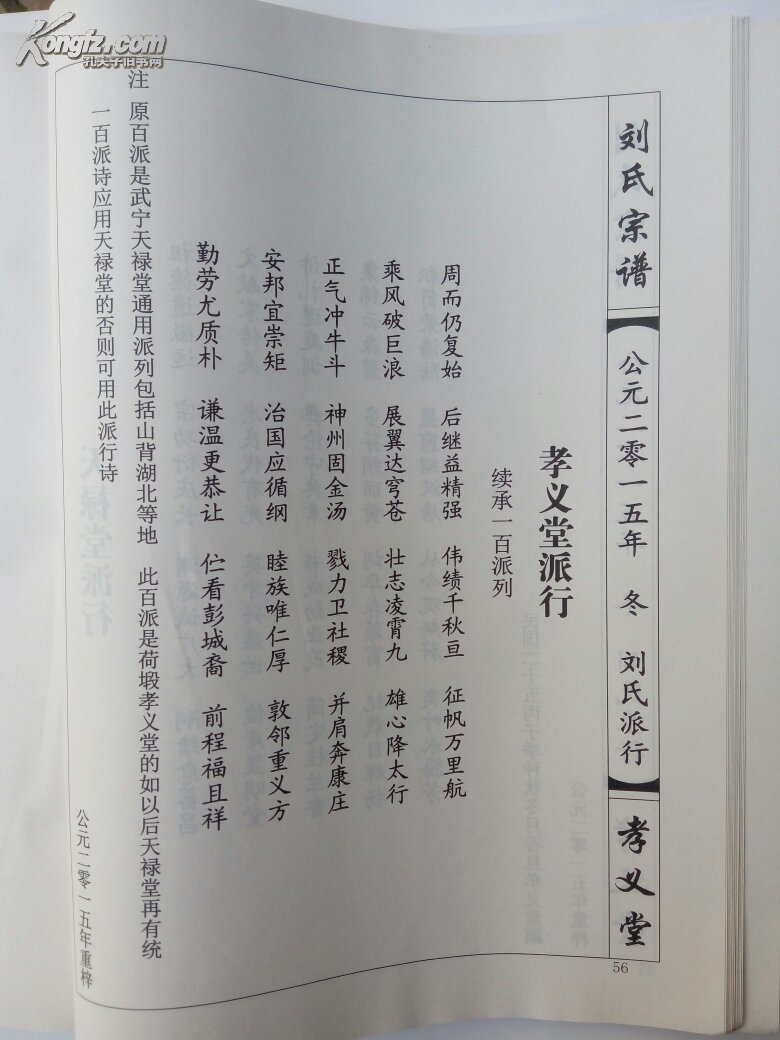 Kongfz.com
孔夫子旧书网
刘氏宗谱
公元二零一五年 冬 刘氏派行
孝义堂
孝义堂派行
续承一百派列
周而仍复始 后继益精强 伟绩千秋亘 征帆万里航
乘风破巨浪 展翼达穹苍 壮志凌霄九 雄心降太行
正气冲牛斗 神州固金汤 戮力卫社稷 并肩奔康庄
安邦宜崇矩 治国应循纲 睦族唯仁厚 敦邻重义方
勤劳尤质朴 谦温更恭让 伫看彭城裔 前程福且祥
注 原百派是武宁天禄堂通用派列包括山背湖北等地 此百派是荷塅孝义堂的如以后天禄堂再有统
一百派诗应用天禄堂的否则可用此派行诗
公元二零一五年重梓
56